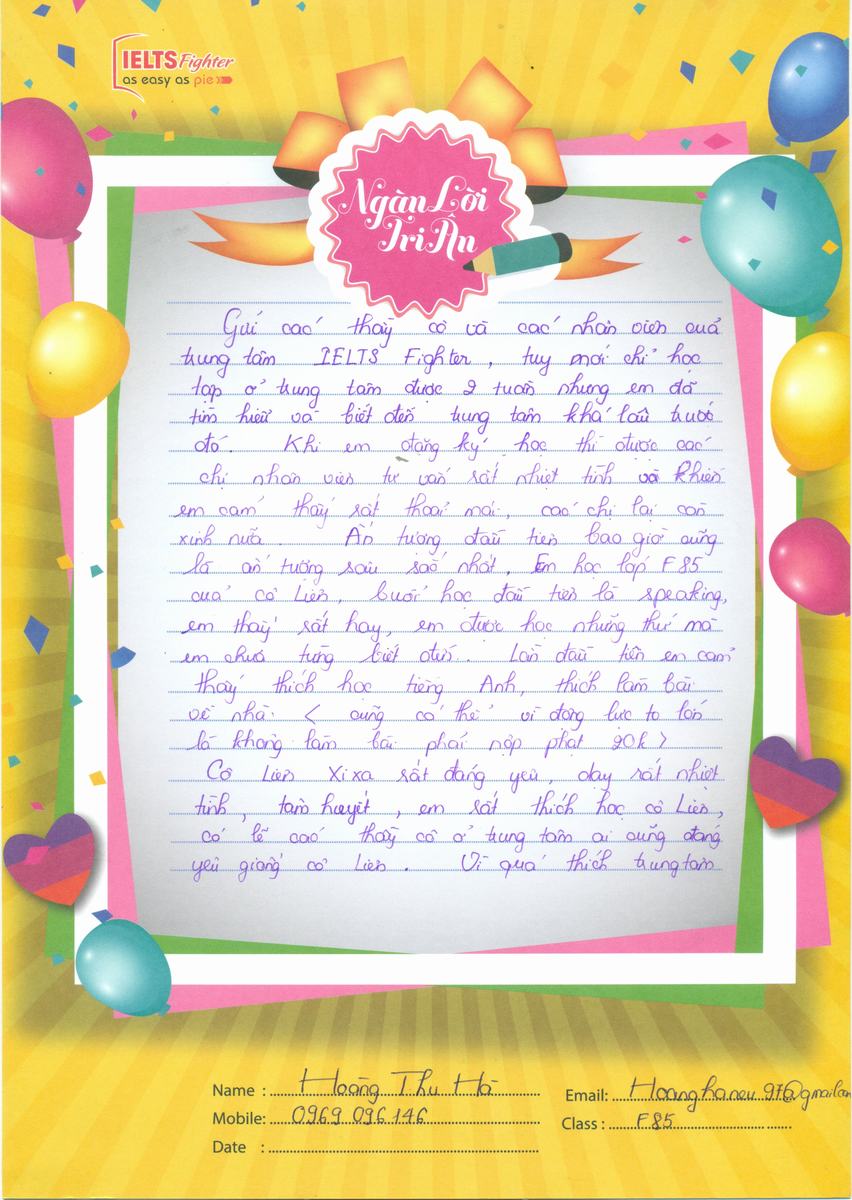 IELTS Fighter
as easy as pie
Ngàn Lời
Tri Ân
Gửi các thầy cô và các nhân viên của
trung tâm IELTS Fighter, tuy mới chỉ học
tập ở trung tâm được 2 tuần nhưng em đã
tìm hiểu và biết đến trung tâm khá lâu trước
đó. Khi em đăng ký học thì được các
chị nhân viên tư vấn rất nhiệt tình và khiến
em cảm thấy rất thoải mái, các chị lại còn
xinh nữa. Ấn tượng đầu tiên bao giờ cũng
là ấn tượng sâu sắc nhất. Em học lớp F85
của cô Liên, buổi học đầu tiên là speaking,
em thấy rất hay, em được học những thứ mà
em chưa từng biết đến. Lần đầu tiên em cảm
thấy thích học tiếng Anh, thích làm bài
về nhà. < cũng có thể vì động lực to lớn
là không làm bài phải nộp phạt 20k >
Cô Liên Xixa rất đáng yêu, dạy rất nhiệt
tình, tâm huyết, em rất thích học cô Liên,
có lẽ các thầy cô ở trung tâm ai cũng đáng
yêu giống cô Liên. Vì quá thích trung tâm
Name : Hoàng Thu Hà
Email: Hoanghaneu97@gmail.com
Mobile: 0969 096 146
Class : F85
Date :